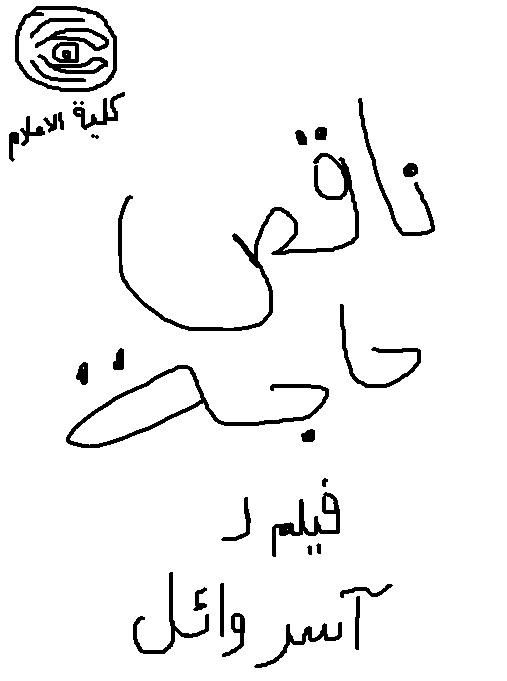 كلية الاعلام
ناقص
حاجة
فيلم لـ
آسر وائل